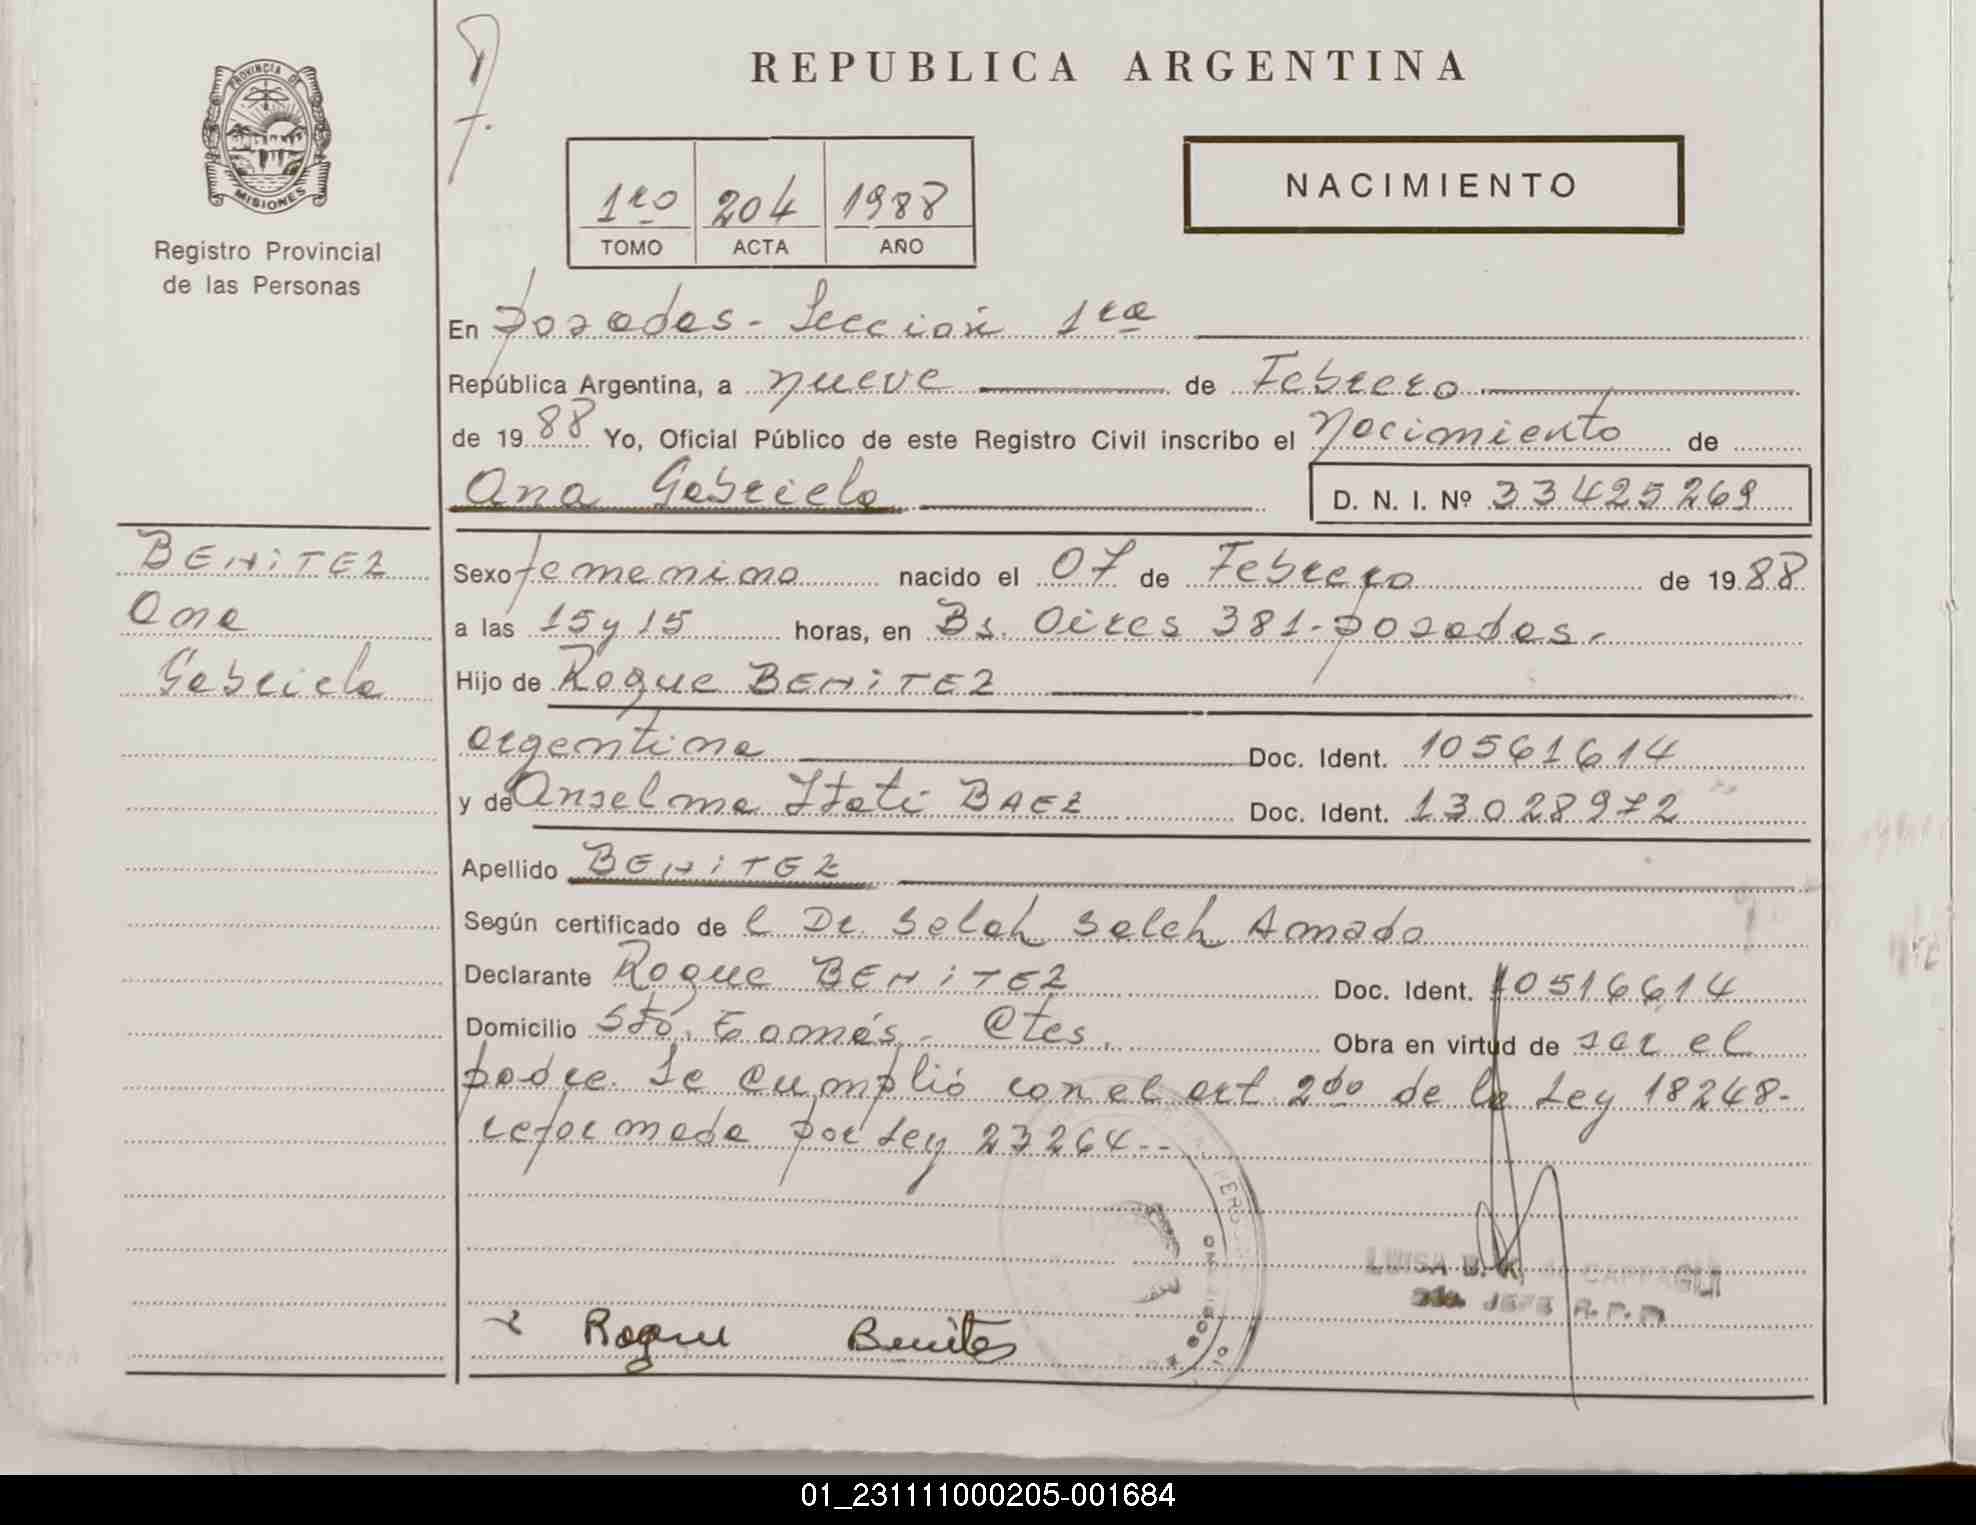 REPUBLICA ARGENTINA
PROVINCIA DE
MISIONES
Registro Provincial
de las Personas
1ro 204 1988
TOMO ACTA AÑO
NACIMIENTO
En Posadas - Sección 1ra
República Argentina, a nueve de Febrero
de 1988 Yo, Oficial Público de este Registro Civil inscribo el Nacimiento de
Ana Gabriela D. N. I. Nº 33425269
BENiTEZ
Ana
Gabriela
Sexo femenino nacido el 07 de Febrero de 1988
a las 15 y 15 horas, en Bs. Aires 381 - Posadas.
Hijo de Roque BENiTEZ
argentina Doc. Ident. 10561614
y de Anselma Itatí BAEZ Doc. Ident. 13028972
Apellido BENiTEZ
Según certificado de l Dr Salah Saleh Amado
Declarante Roque BENiTEZ Doc. Ident. 10516614
Domicilio Sto. Tomás - Ctes. Obra en virtud de ser el
padre. Se cumplió con el art 2do de la Ley 18248-
reformada por Ley 23264--
LUISA B. K. de CAPPAGLI
JEFE R.P.P.
Roque Benites
01_231111000205-001684